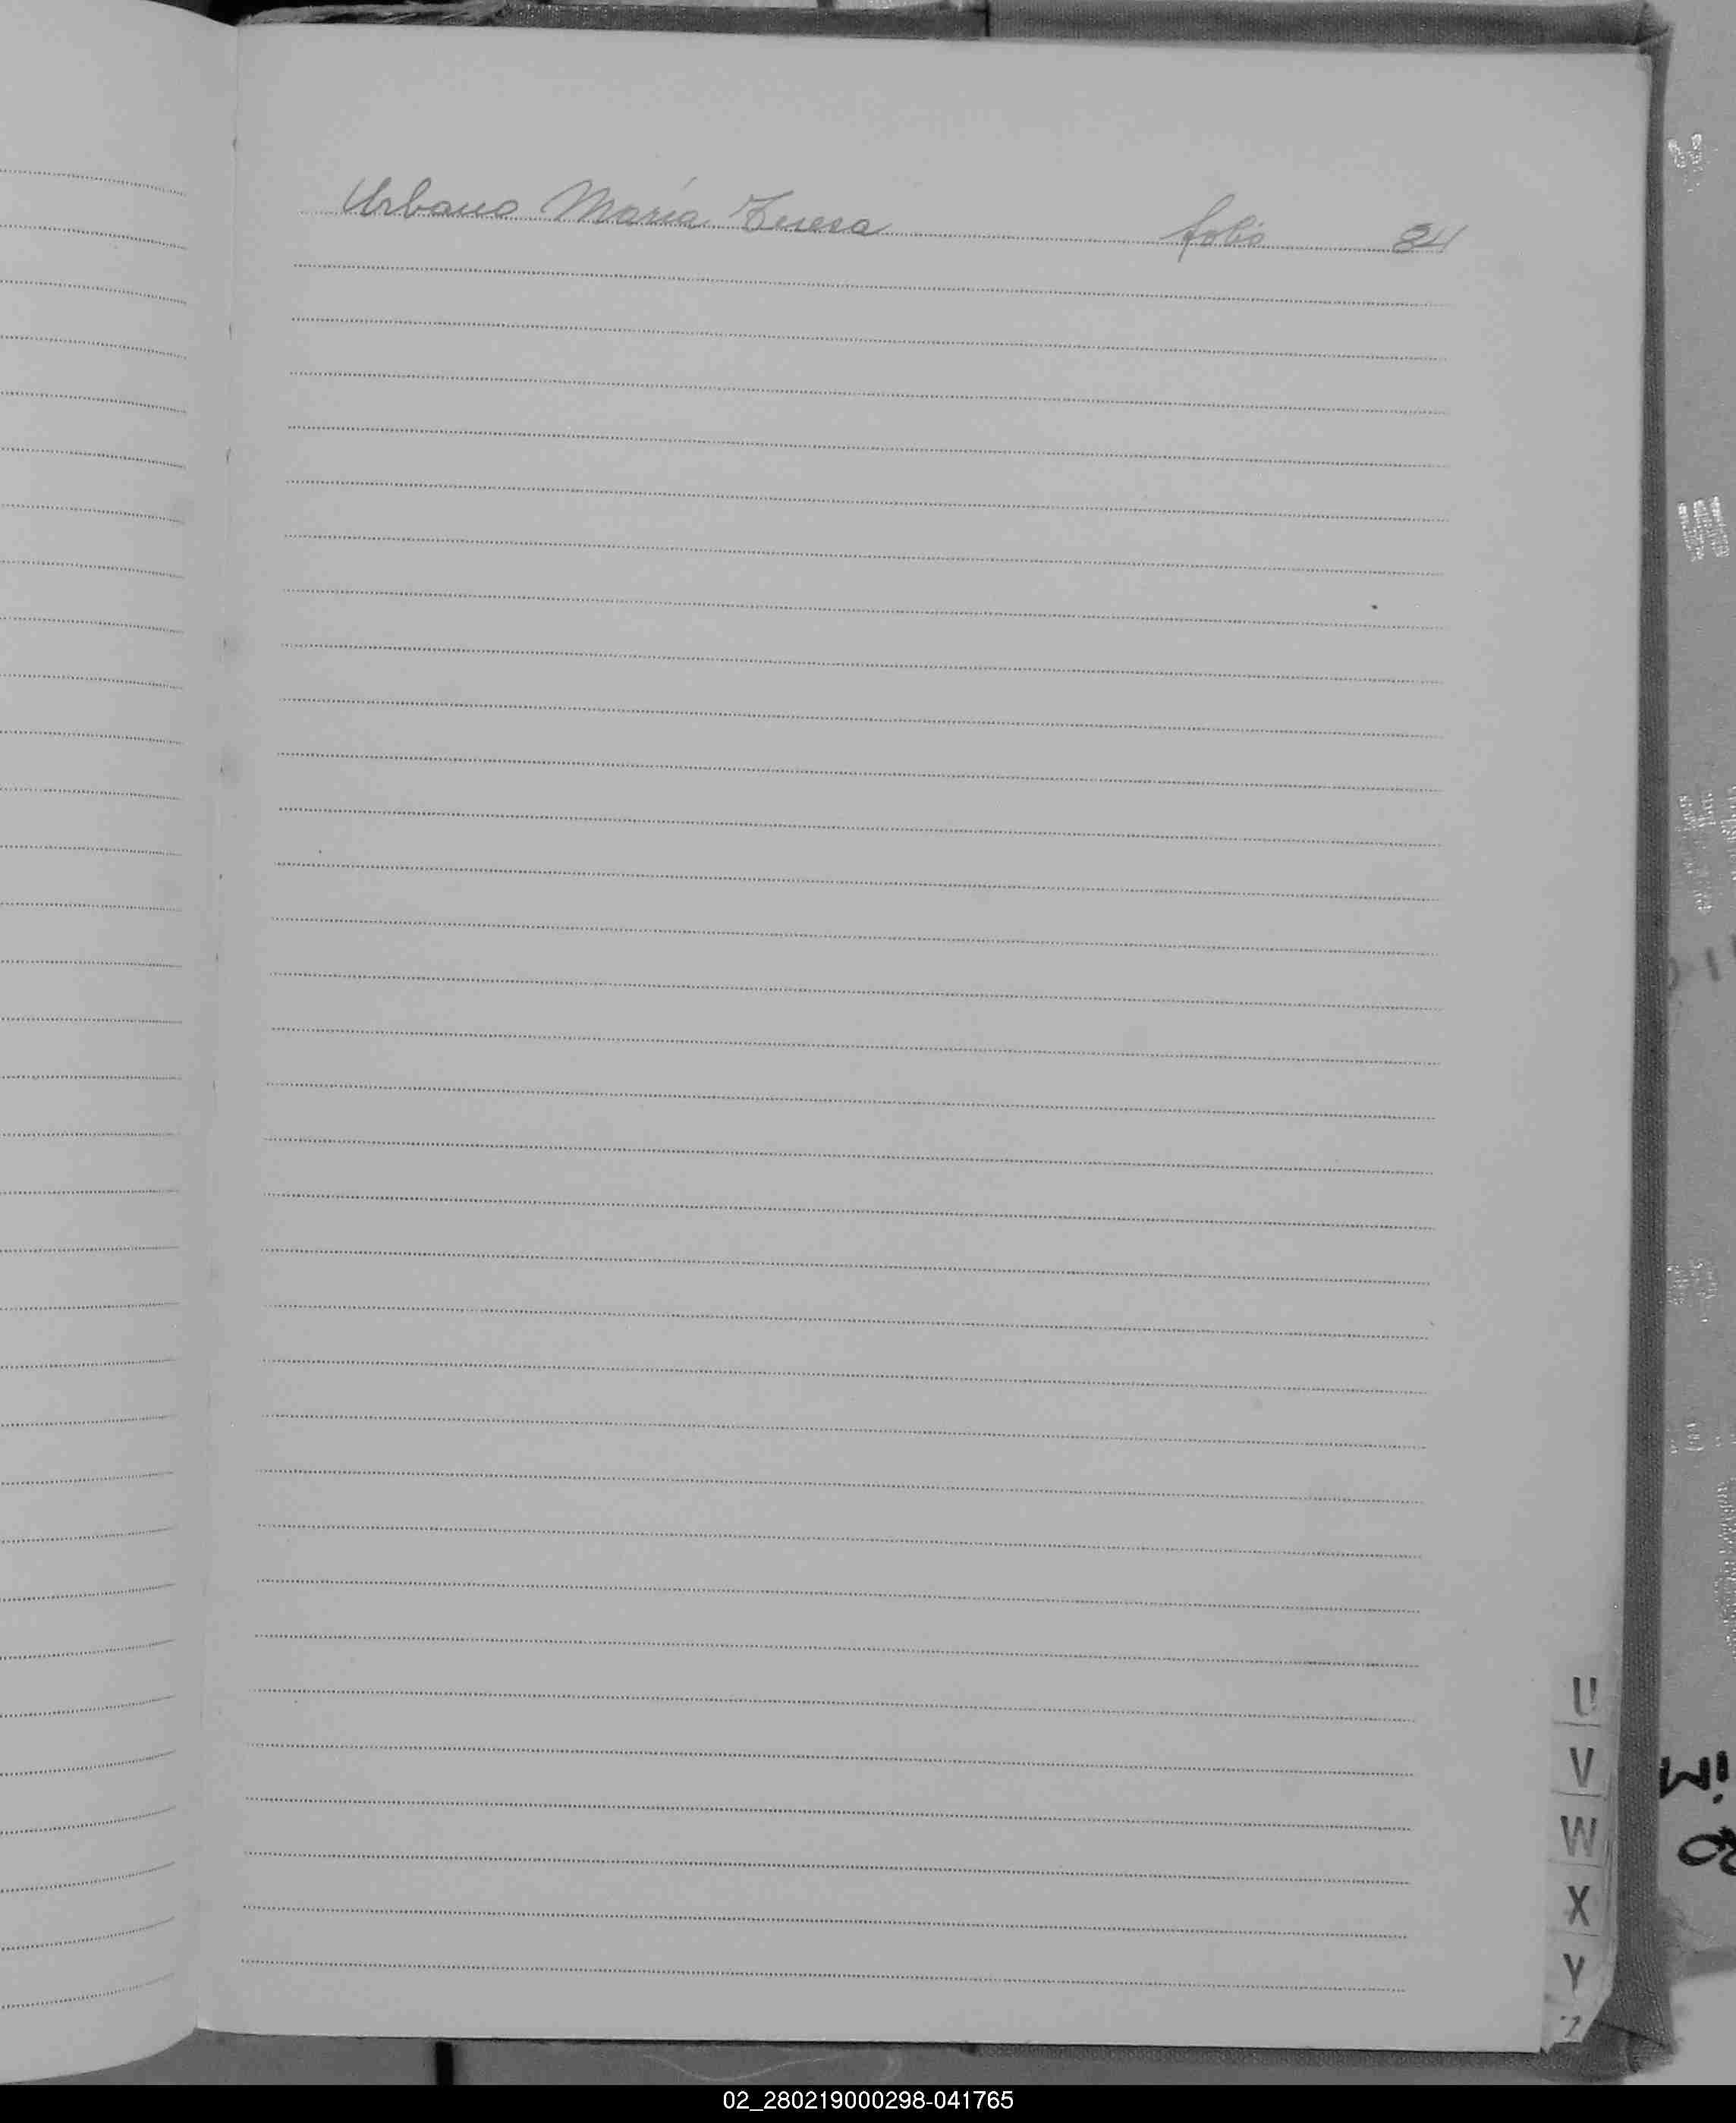 Urbano María Teresa folio 84
U
V
W
X
Y
Z
02_280219000298-041765